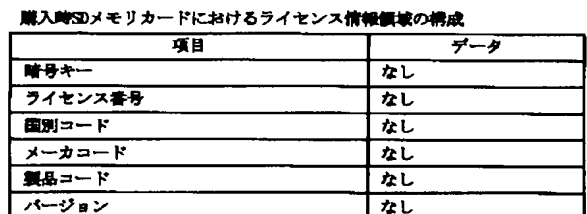 購入時SDメモリカードにおけるライセンス情報領域の構成
項目 データ
暗号キー なし
ライセンス番号 なし
国別コード なし
メーカコード なし
製品コード なし
バージョン なし